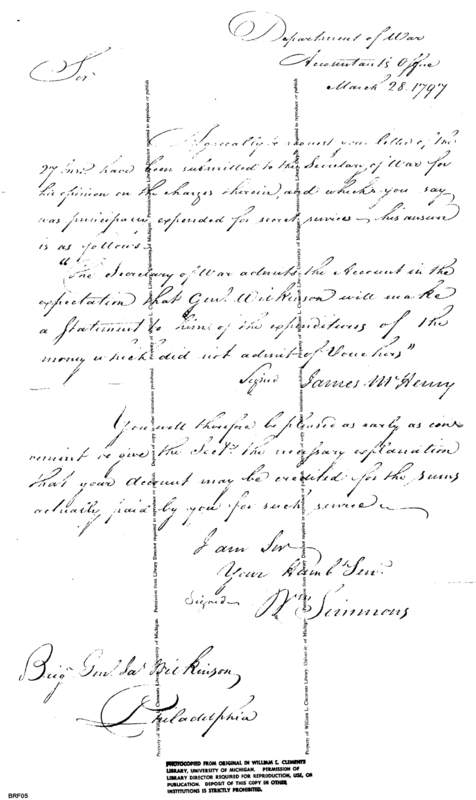 Department of War
Accountant's Office
March 28. 1797
Sir
Agreeably to request your letter of the
27 Inst. have been submitted to the Secretary of War for
his opinion on the charges therein, and which you say
was principally expended for secret service his answer
is as follows.
"The Secretary of War admits the Account in the
expectation that Genl. Wilkinson will make
a Statement to him of the expenditures of the
money which did not admit of Vouchers"
Signed James McHenry
You will therefore be pleased as early as con
venient to give the Secty. the necessary explanation
that your Account may be credited for the sums
actually paid by you for such service
I am Sir
Your Humb. Serv.
Signed Wm Simmons
Brig. Genl. Jas. Wilkinson
Philadelphia
Property of William L. Clements Library, University of Michigan. Permission from Library Director required to reproduce or publish
PHOTOCOPIED FROM ORIGINAL IN WILLIAM L. CLEMENTS
LIBRARY, UNIVERSITY OF MICHIGAN. PERMISSION OF
LIBRARY DIRECTOR REQUIRED FOR REPRODUCTION, USE, OR
PUBLICATION. DEPOSIT OF THIS COPY IN OTHER
INSTITUTIONS IS STRICTLY PROHIBITED.
BRF05